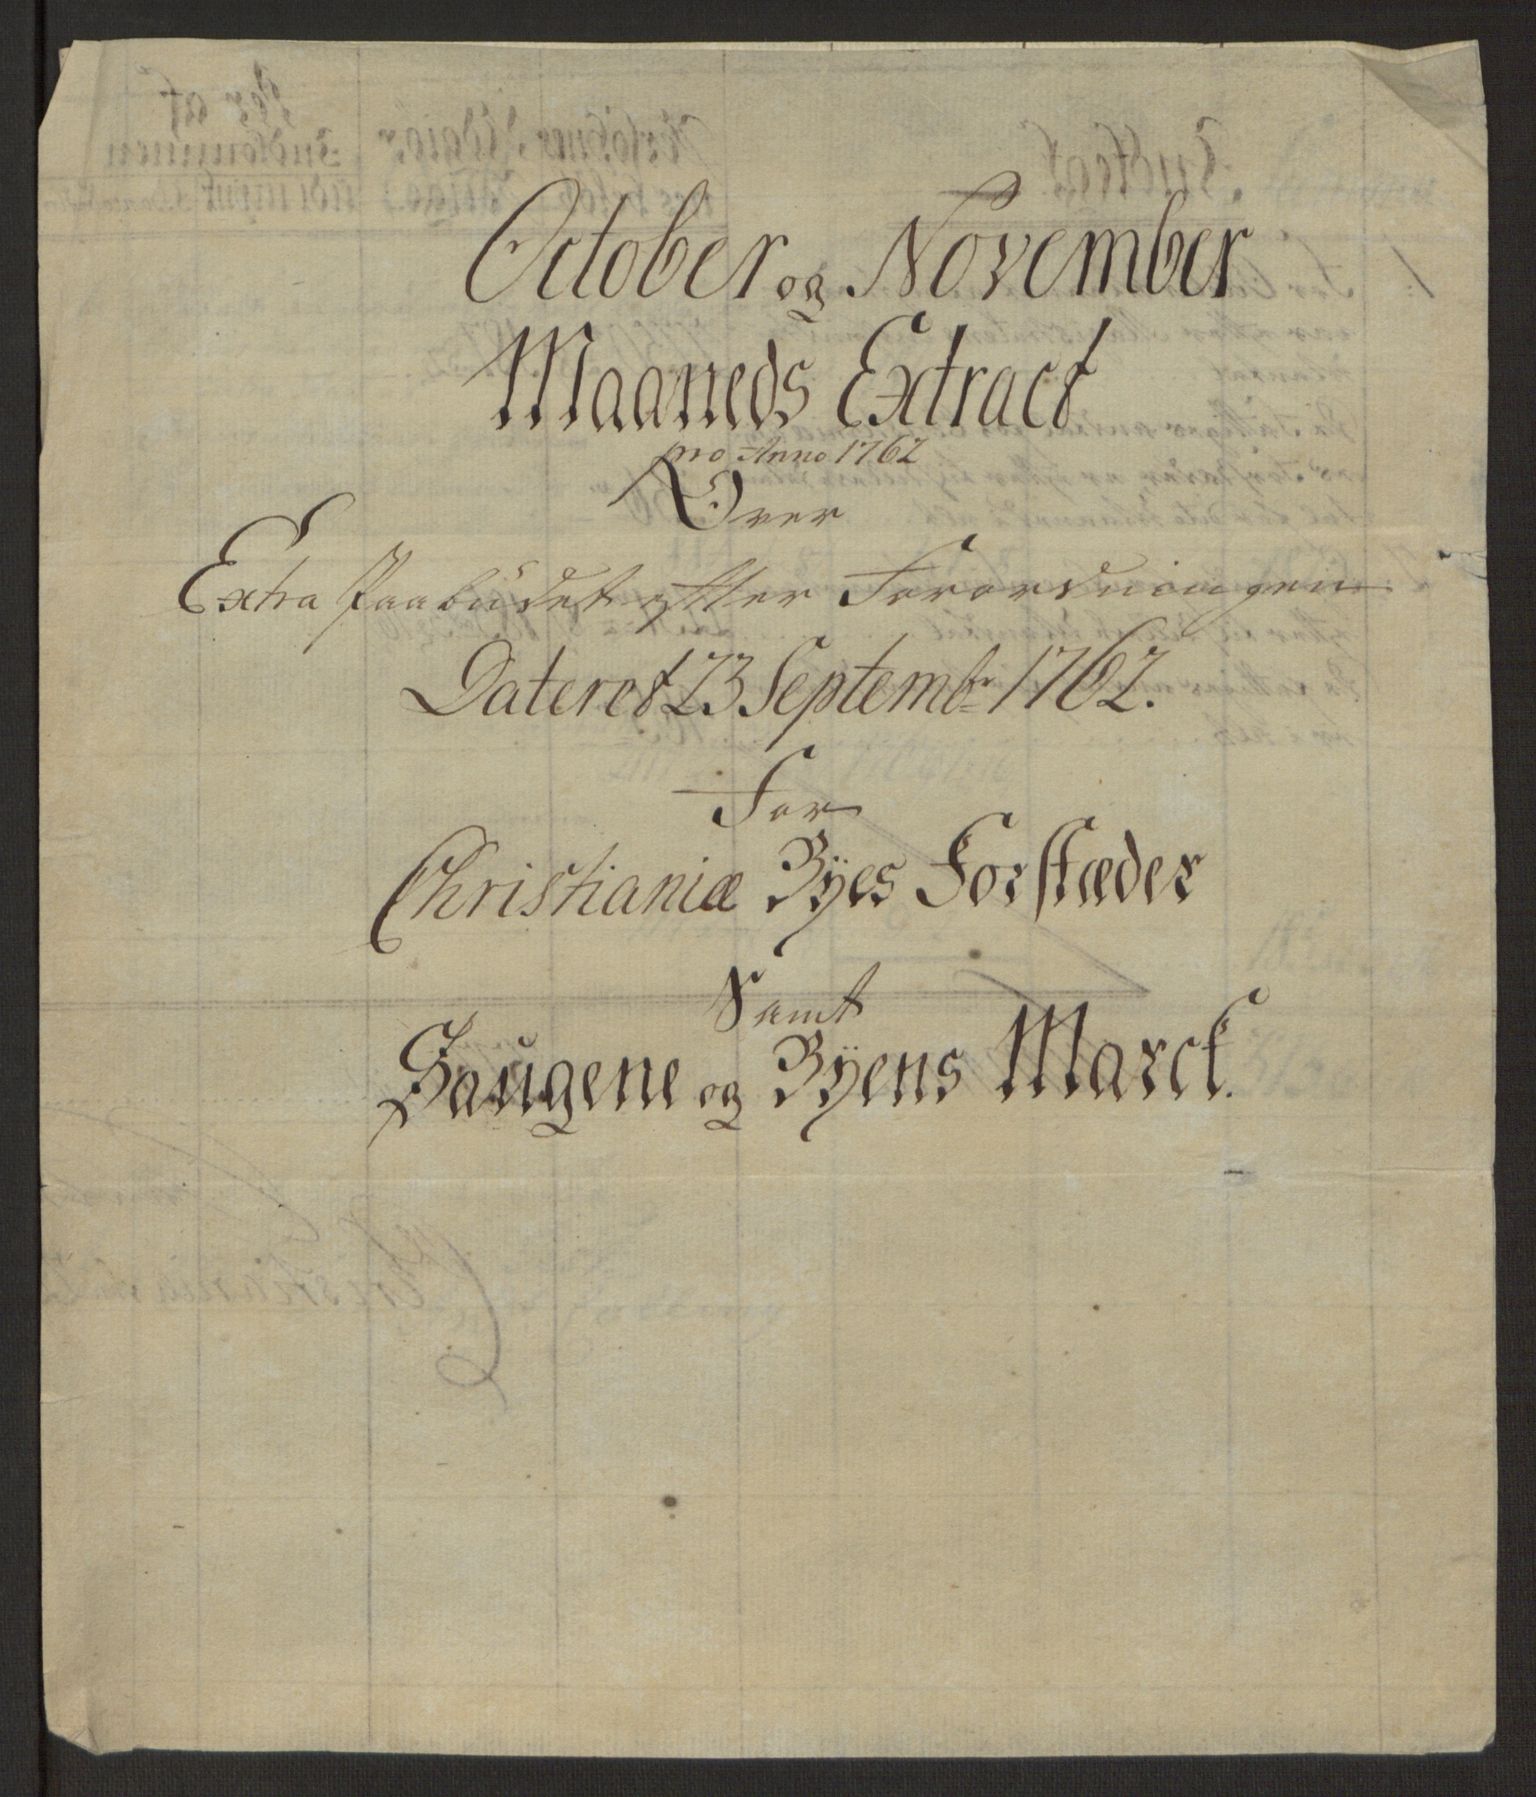 October og November
Maaneds Extract
pro Anno 1762
Over
Extra Paabudet efter Forordningen
Dateret 23 Septembr 1762.
For
Christianiæ Byes Forstæder
Samt
Saugene og Byens Marck.